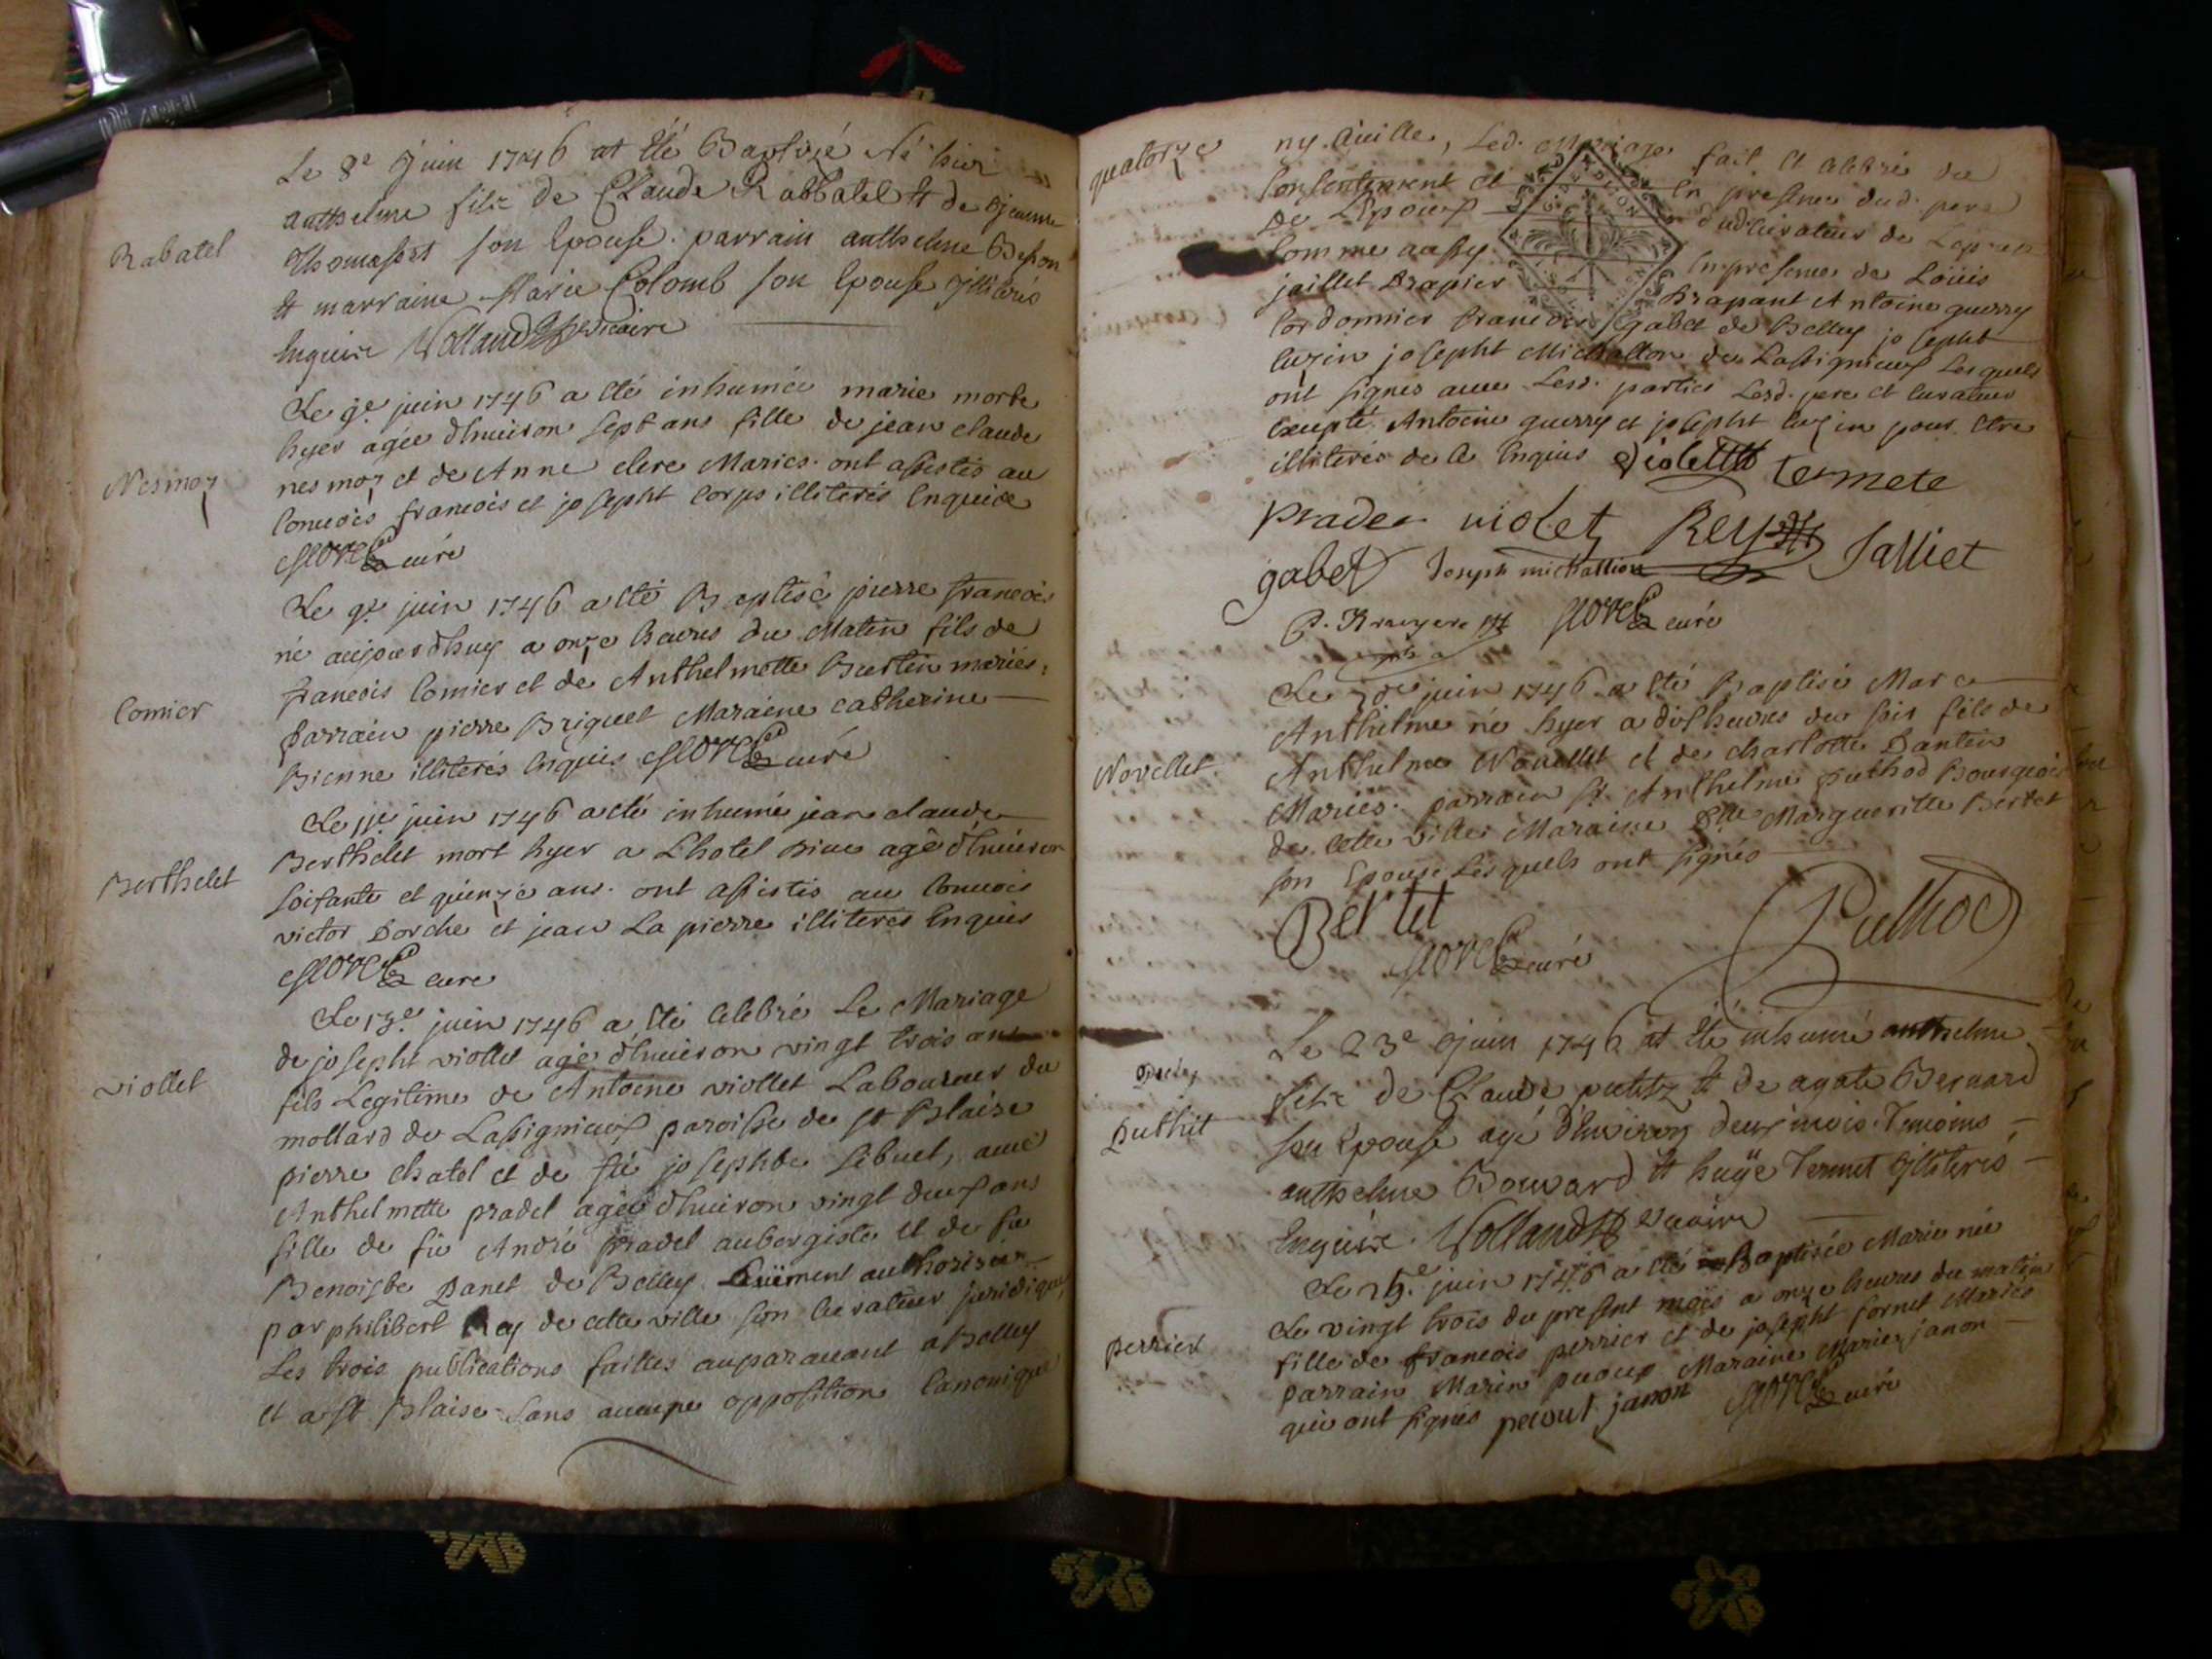 Le 8e Juin 1746 at été Baptisé Né hier
anthelme fils de Claude Rabbatel et de Jeanne
Thomasset son Epouse. parrain anthelme Besson
et marraine Marie Colomb son Epouse illiterés
Enquise Volland vicaire
Rabatel
Le 9e juin 1746 a eté inhumée marie morte
hyer agée d'huiron sept ans fille de jean claude
nesmoz et de Anne clere Mariés. ont assistés au
Conuois francois et josepht Corps illiterés Enquice
Morel curé
Nesmoz
Le 9e juin 1746 a eté Baptisé pierre francois
né aujourdhuy a onze heures du Matin fils de
francois Comier et de Anthelmette Burtin mariés.
parrain pierre Briquet Maraine catherine
Bienne illiterés Enquis Morel curé
Comier
Le 11e juin 1746 a eté inhumé jean claude
Berthelet mort hyer a Lhotel Dieu agé d'huiron
soisante et quinze ans. ont assistés au Conuois
victor Dorche et jean La pierre illiterés Enquis
Morel curé
Berthelet
Le 13e juin 1746 a eté Celebré Le Mariage
de josepht viollet agé d'huiron vingt trois ans
fils Legitime de Antoine viollet Laboureur du
mollard de Lassignieux paroisse de st Blaise
pierre chatel et de fée josephte Sibuet, auec
Anthelmette pradel agée d'huiron vingt deux ans
fille de fû André pradel aubergiste et de fée
Benoiste Danet de Belley düement authorisée
par philibert Rey de cette ville son curateur juridique,
Les trois publications faittes auparauant a Belley
et a st Blaise sans aucune opposition Canonique
viollet
quatorze
ny Ciuille, Led. Mariage fait et Celebré du
Consentement et en presence dud. pere
de L'Epoux dud curateur de L'epouse
Comme aussy en presence de Loüis
jaillet Drapier Drapant Antoine guerry
Cordonnier francois gabet de Belley josepht
luzin josepht Michallon de Lassignieux Lesquels
ont signés auec Lesd. parties Lesd. pere et curateur
Excepté Antoine guerry et josepht luzin pour etre
illiterés de ce Enquis violett termete
pradel violet Rey Jalliet
gabet Joseph michallion
P. Bruyere Morel curé
Le juin 1746 a eté Baptisé Marc
Anthelme né hyer a dix heures du soir fils de
Anthelme Nouellet et de charlotte Dantin
Mariés. parrain Sr. Anthelme puthod Bourgeois
de cette ville Maraine Dlle Margueritte Bertet
son Epouse Lesquels ont signés
Bertet Puthod
Morel curé
Novellet
Le 23e Juin 1746 at été inhumé anthelme
fils de Claude putitz et de agate Bernard
son Epouse agé d'huiron deux mois. Temoins
anthelme Bouvard et huge Termet illiterés
Enquise. Volland vicaire
Puthit
Le 25e juin 1746 a eté Baptisée Marie née
Le vingt trois du present mois a onze heures du matin
fille de francois perrier et de josepht fornet Mariés
parrain Marin pecoup Maraine Marie janon
qui ont signés pecout janon Morel curé
perrier